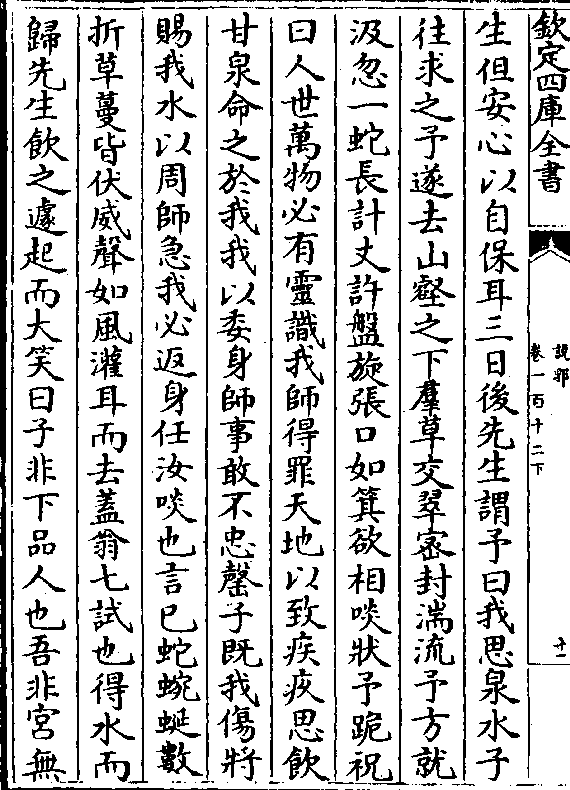 欽定四庫全書
說郛
卷一百十二下
十一
生但安心以自保耳三日後先生謂予曰我思泉水子
往求之予遂去山壑之下羣草交翠密封湍流予方就
汲忽一蛇長計丈許盤旋張口如箕欲相啖狀予跪祝
曰人世萬物必有靈識我師得罪天地以致疾疢思飲
甘泉命之於我我以委身師事敢不忠罄子既我傷將
賜我水以周師急我必返身任汝啖也言已蛇蜿蜒數
折草蔓皆伏威聲如風灌耳而去蓋翁七試也得水而
歸先生飲之遽起而大笑曰子非下品人也吾非宮無